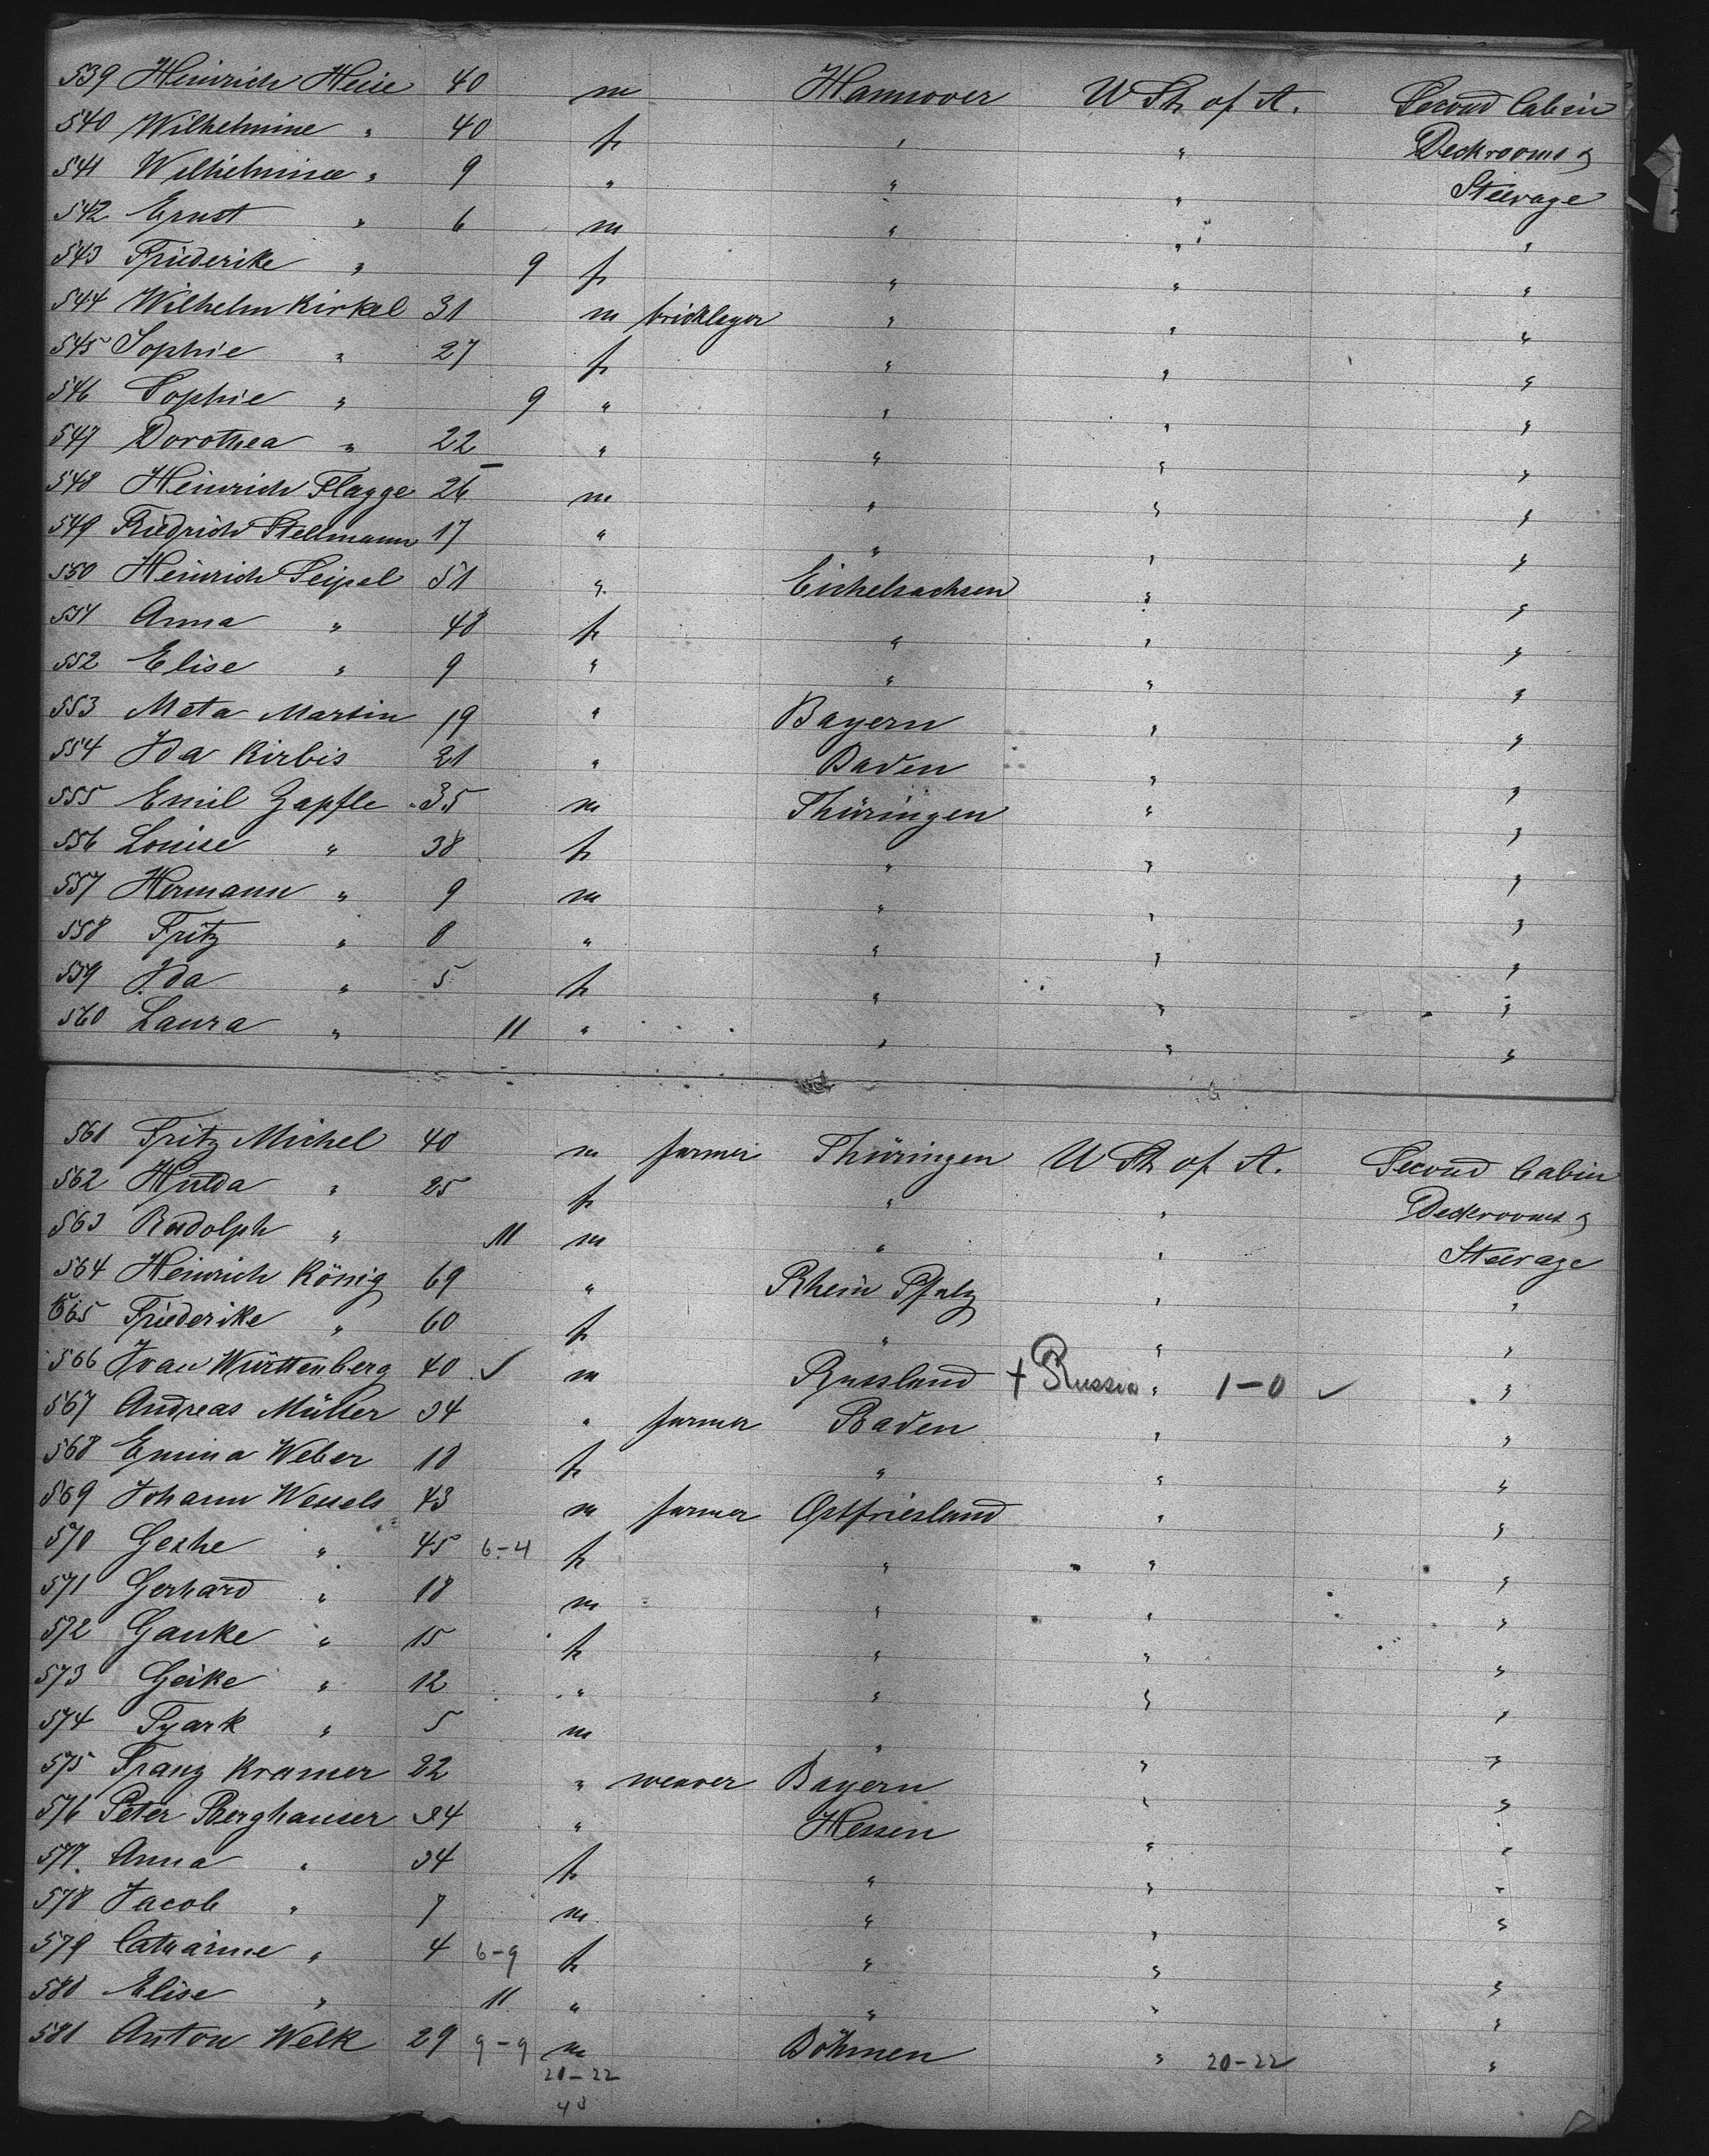 539 Heinrich Heise 40 m Hannover U Sts of A. Second Cabin
540 Wilhelmine " 40 f " " Deckrooms &
541 Wilhelmine " 9 " " " Steerage
542 Ernst " 6 m " " "
543 Friederike " 9 f " " "
544 Wilhelm Kirkel 31 m brickleyer " " "
545 Sophie " 27 f " " "
546 Sophie " 9 " " " "
547 Dorothea " 22 " " " "
548 Heinrich Flagge 26 m " " "
549 Friedrich Stellmann 17 " " " "
550 Heinrich Seipel 51 " Eichelsachsen " "
551 Anna " 48 f " " "
552 Elise " 9 " " " "
553 Meta Martin 19 " Bayern " "
554 Ida Kirbis 21 " Baden " "
555 Emil Zapfle 35 m Thüringen " "
556 Louise " 38 f " " "
557 Hermann " 9 m " " "
558 Fritz " 8 " " " "
559 Ida " 5 f " " "
560 Laura " 11 " " " "
561 Fritz Michel 40 m farmer Thüringen U Sts of A. Second Cabin
562 Hulda " 25 f " " Deckrooms &
563 Rudolph " 11 m " " Steerage
564 Heinrich König 69 " Rhein Pfalz " "
565 Friederike " 60 f " " "
566 Ivan Württenberg 40 ✓ m Russland + Russia " 1-0 ✓ "
567 Andreas Müller 34 " farmer Baden " "
568 Emma Weber 18 f " " "
569 Johann Wessels 43 m farmer Ostfriesland " "
570 Geshe " 45 6-4 f " " "
571 Gerhard " 18 m " " "
572 Gauke " 15 f " " "
573 Geike " 12 " " " "
574 Tjark " 5 m " " "
575 Franz Kramer 22 " weaver Bayern " "
576 Peter Berghauser 34 " Hessen " "
577 Anna " 34 f " " "
578 Jacob " 7 m " " "
579 Catharine " 4 6-9 f " " "
580 Elise " 11 " " " "
581 Anton Welk 29 9-9 m Böhmen " 20-22 "
20-22